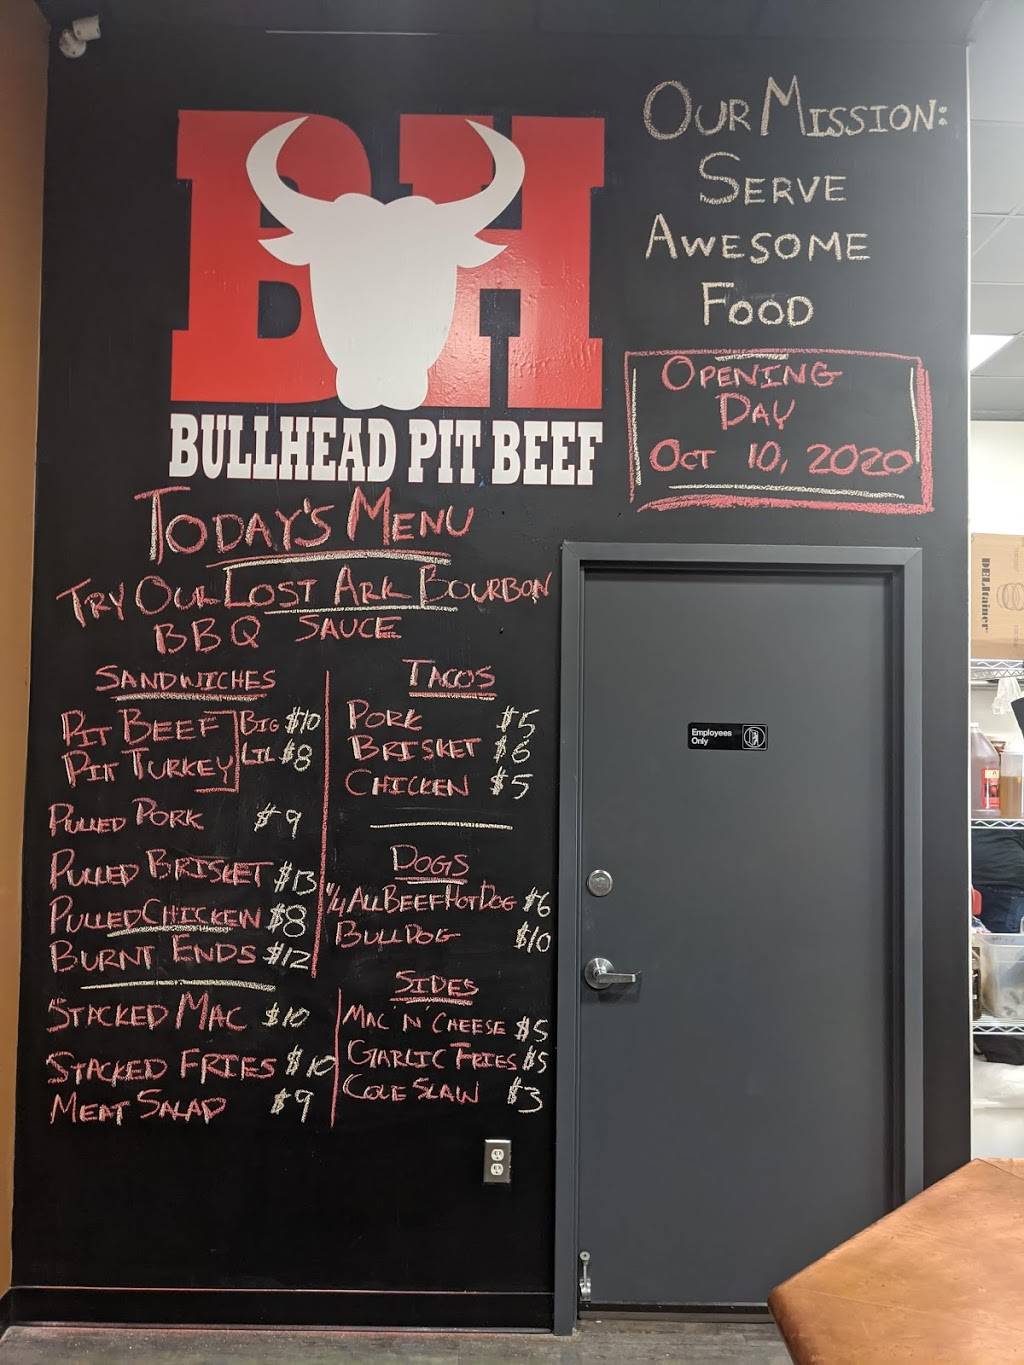 BH
BULLHEAD PIT BEEF
OUR MISSION:
SERVE
AWESOME
FOOD
OPENING
DAY
OCT 10, 2020
TODAY'S MENU
TRY OUR LOST ARK BOURBON
BBQ SAUCE
SANDWICHES
PIT BEEF BIG $10
PIT TURKEY LIL $8
PULLED PORK $9
PULLED BRISKET $13
PULLED CHICKEN $8
BURNT ENDS $12
STACKED MAC $10
STACKED FRIES $10
MEAT SALAD $9
TACOS
PORK $5
BRISKET $6
CHICKEN $5
DOGS
1/4 ALL BEEF HOT DOG $6
BULLDOG $10
SIDES
MAC 'N' CHEESE $5
GARLIC FRIES $5
COLE SLAW $3
Employees
Only
DELItainer